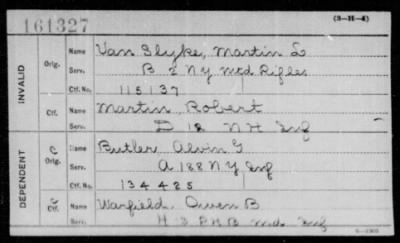 161327
(3-11-4)
INVALID
Orig.
Name Van Slyke, Martin L
Serv. B 2 N Y Mtd Rifles
Ctf. No. 115137
Ctf.
Name Martin Robert
Serv. D 12 N H Inf
DEPENDENT
C
Orig.
Name Butler Alvin G
Serv. A 188 N Y Inf
Ctf. No. 134425
C
Ctf.
Name Warfield Owen B
Serv. H 3 P H B Md. Inf